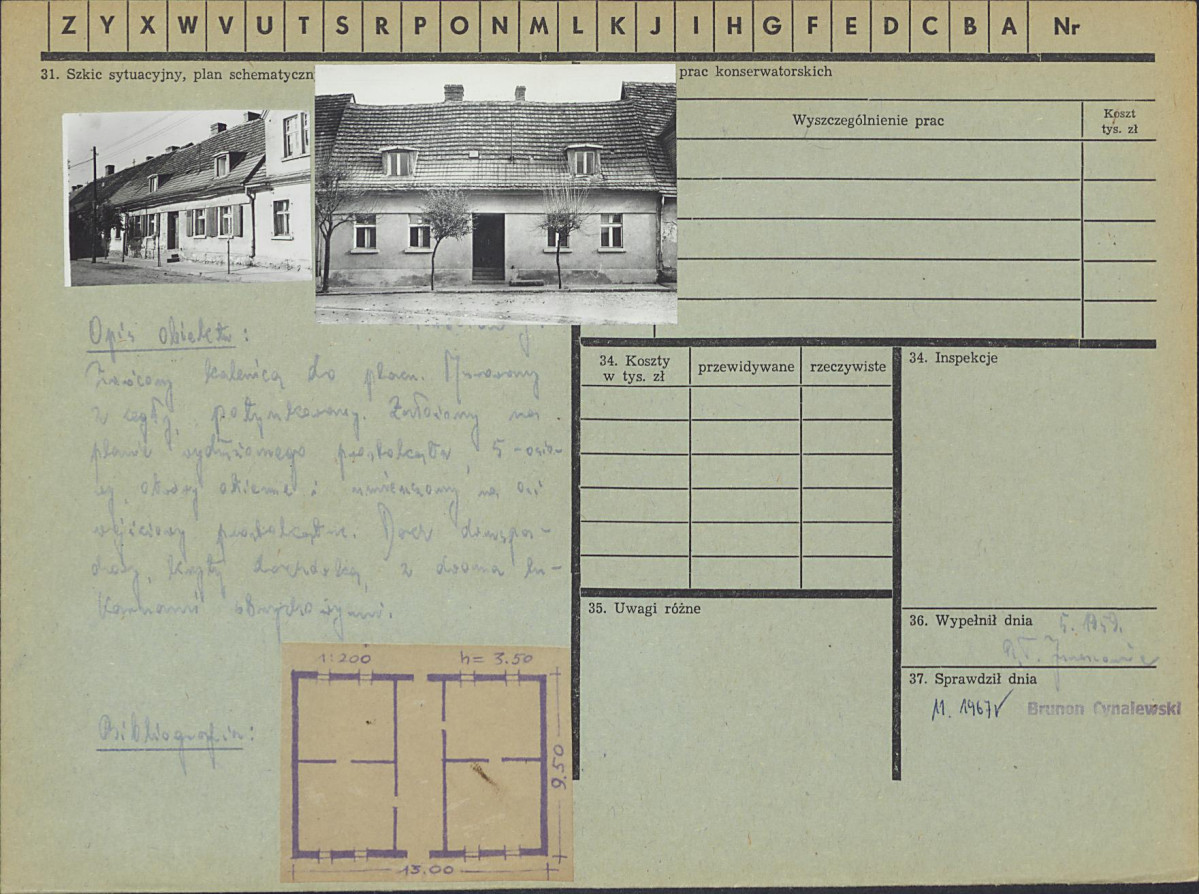 Z Y X W V U T S R P O N M L K J I H G F E D C B A Nr
31. Szkic sytuacyjny, plan schematyczn
prac konserwatorskich
Wyszczególnienie prac
Koszt
tys. zł
Opis obiektu:
Zwrócony kalenicą do placu. Murowany
z cegły, potynkowany. Założony na
planie wydłużonego prostokąta, 5-osio-
wy, otwory okienne i umieszczony na osi
wejściowy prostokątne. Dach dwuspa-
dowy, kryty dachówką, z dwoma lu-
karnami
Bibliografia:
1:200 h= 3.50
9.50
13.00
34. Koszty
w tys. zł
przewidywane
rzeczywiste
34. Inspekcje
35. Uwagi różne
36. Wypełnił dnia 5. 1959.
37. Sprawdził dnia
11. 1967
Brunon Cynalewski